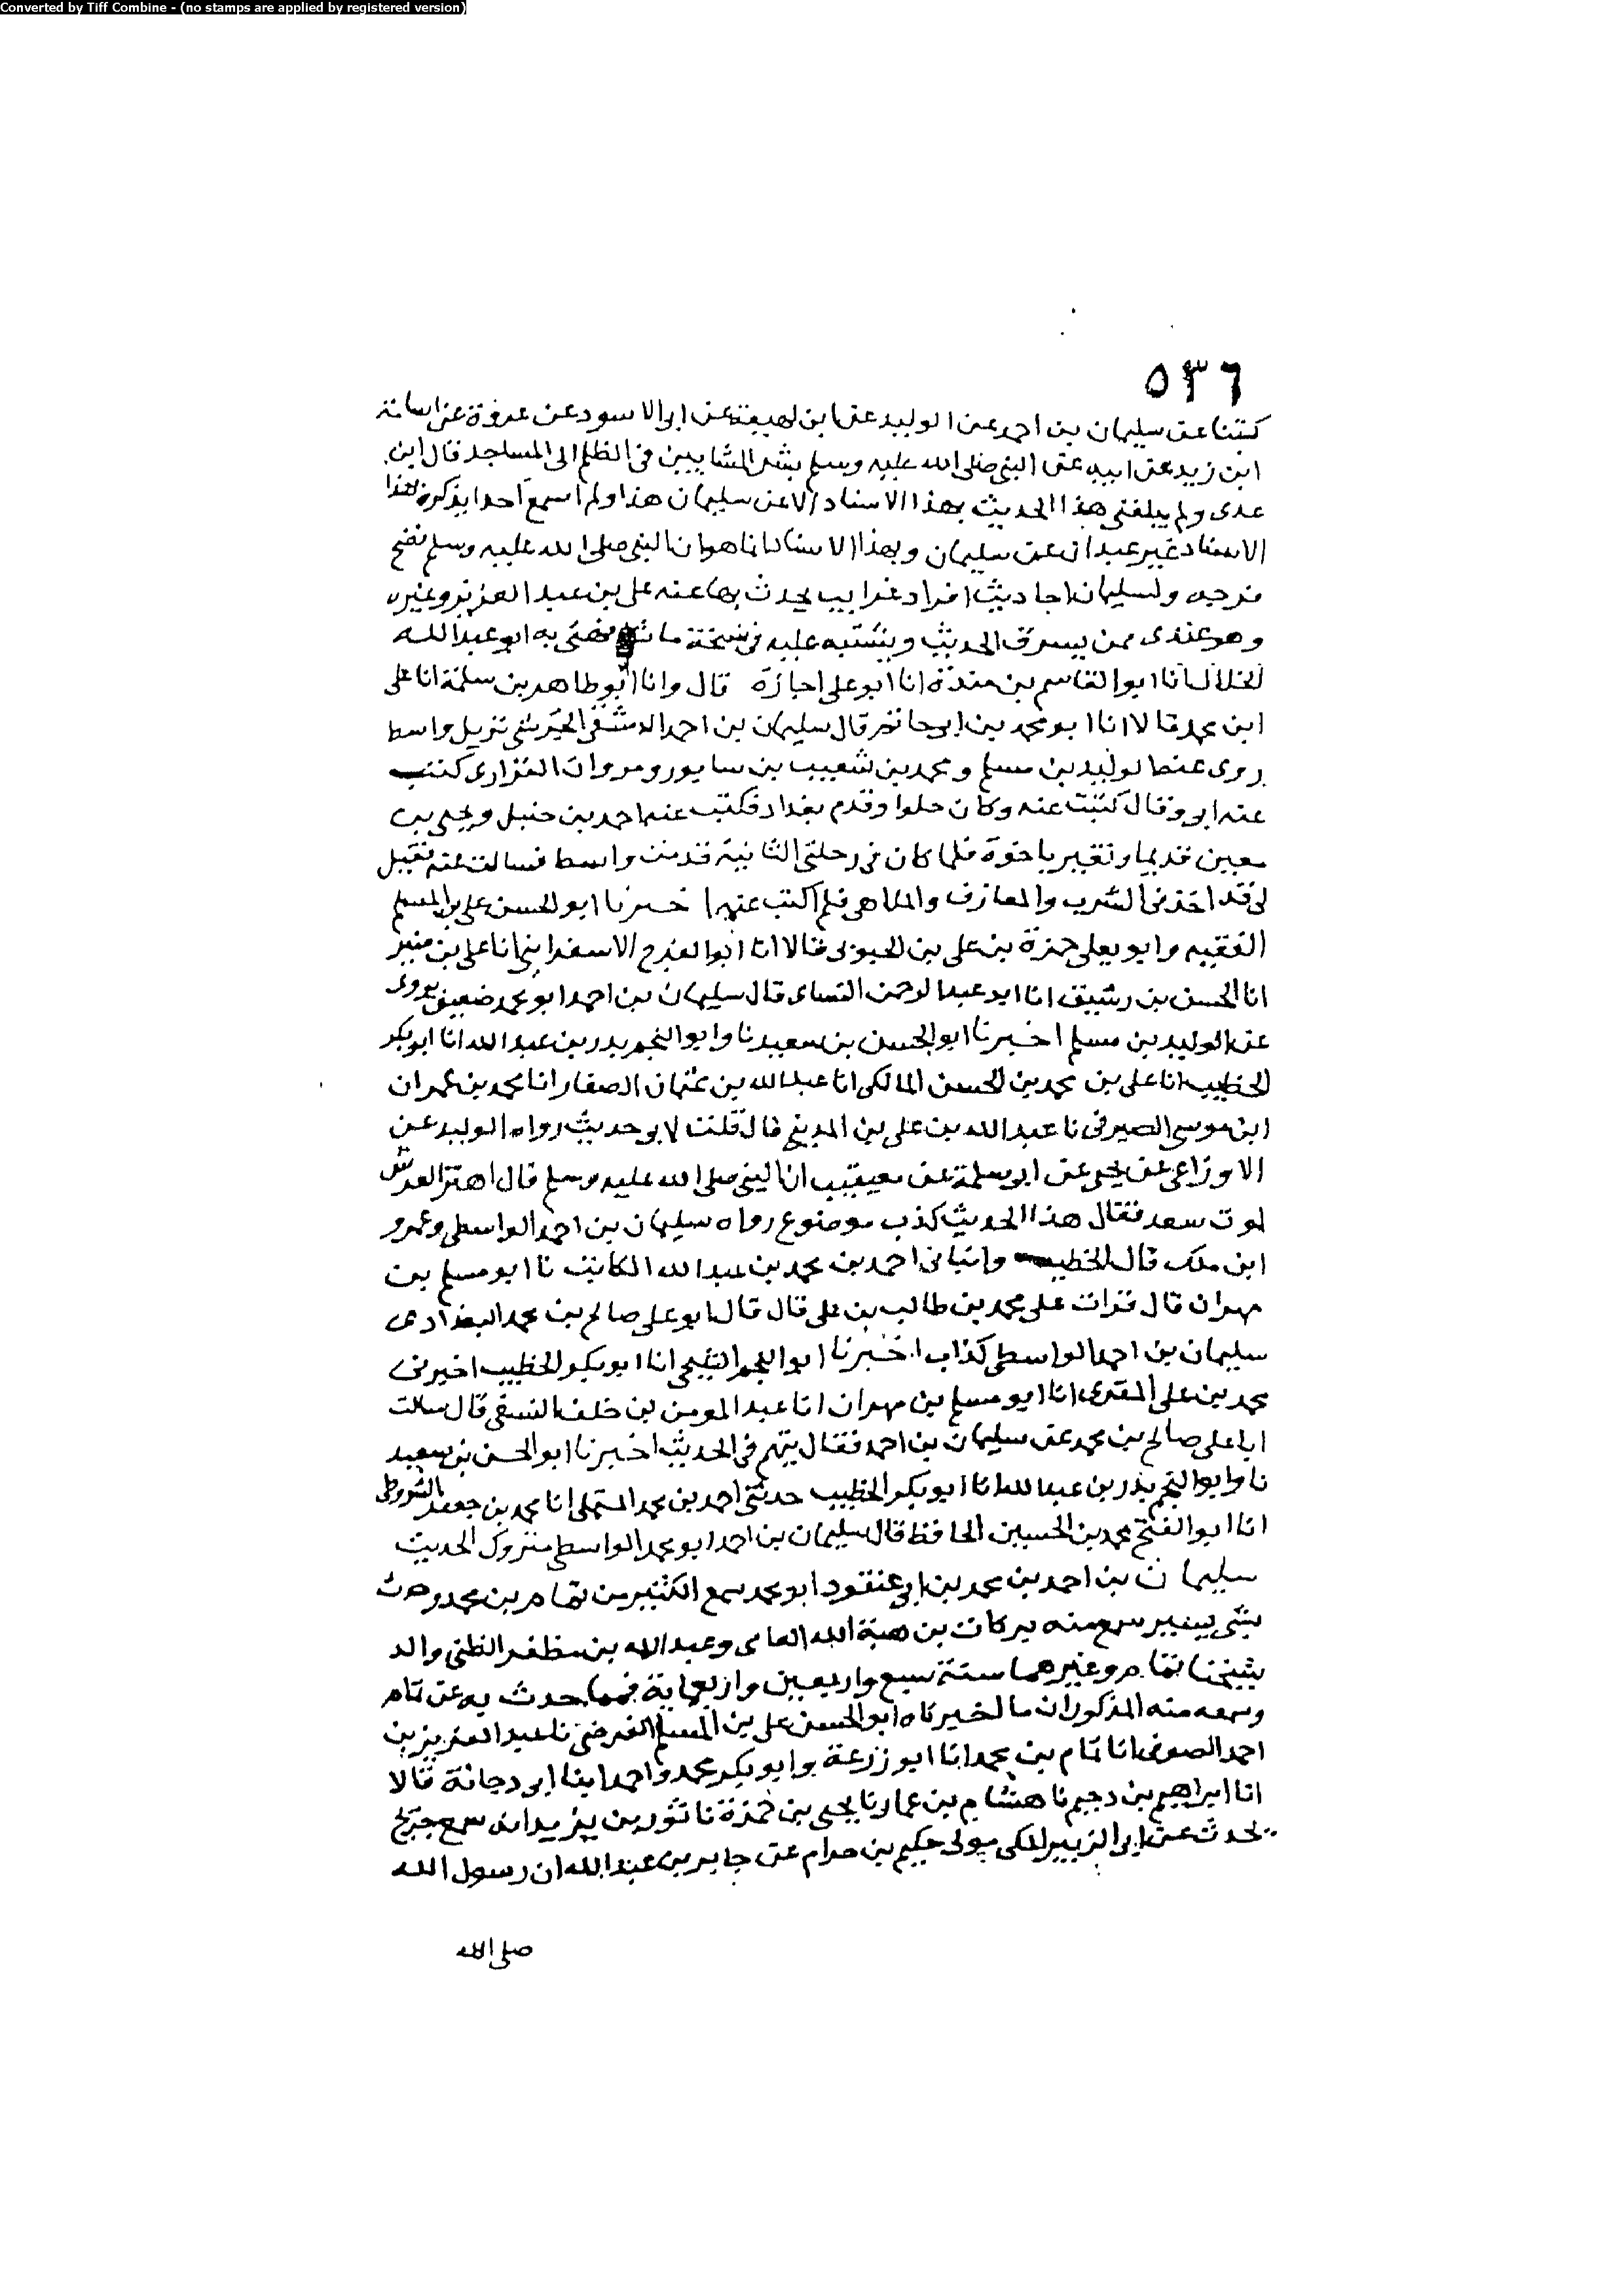 Converted by Tiff Combine - (no stamps are applied by registered version)
٥٣٦
كتبنا عن سليمان بن احمد عن الوليد عن ابن لهيعة عن ابي الاسود عن عروة عن اسامة
ابن زيد عن ابيه عن النبي صلى الله عليه وسلم بشر المشايين في الظلم الى المساجد قال ابن
عدى ولم يبلغني هذا الحديث بهذا الاسناد الا عن سليمان هذا ولم اسمع احدا يذكره بهذا
الاسناد غير عبدان عن سليمان وبهذا الاسناد انما هو ان النبي صلى الله عليه وسلم نضح
فرجه ولسليمان احاديث افراد غرايب يحدث بها عنه على بن عبد العزيز وغيره
وهو عندى ممن يسرق الحديث ويشتبه عليه في نسخة ما شافهني به ابو عبد الله
الخلال انا ابو القاسم بن مندة انا ابو على اجازة قال وانا ابو طاهر بن سلمة انا على
ابن محمد قالا انا ابو محمد بن ابي حاتم قال سليمان بن احمد الدمشقي الجرشي نزيل واسط
روى عن الوليد بن مسلم ومحمد بن شعيب بن سابور ومروان الفزارى كتب
عنه ابي وقال كتبت عنه وكان حلوا وقدم بغداد فكتب عنه احمد بن حنبل ويحيى بن
معين قديما وتغير باخرة فلما كان في رحلتي الثانية قدمت واسط فسالت عنه فقيل
لي قد اخذ في الشرب والمعازف والملاهي فلم اكتب عنه اخبرنا ابو الحسن على بن المسلم
الفقيه وابو يعلى حمزة بن على بن الحبوبي قالا انا ابو الفرج الاسفرايني انا على بن منير
انا الحسن بن رشيق انا ابو عبد الرحمن النساى قال سليمان بن احمد ابو محمد ضعيف يروى
عن الوليد بن مسلم اخبرنا ابو الحسن بن سعيد نا وابو النجم بدر بن عبد الله انا ابو بكر
الخطيب انا على بن محمد بن الحسن المالكى انا عبد الله بن عثمان الصفار انا محمد بن عمران
ابن موسى الصيرفي نا عبد الله بن على بن المديني قال قلت لابي حديث رواه الوليد عن
الاوزاعى عن يحيى عن ابي سلمة عن معيقيب ان النبي صلى الله عليه وسلم قال اهتز العرش
لموت سعد فقال هذا الحديث كذب موضوع رواه سليمان بن احمد الواسطى وعمرو
ابن ملك قال الخطيب وانبانى احمد بن محمد بن عبد الله الكاتب نا ابو مسلم بن
مهران قال قرات على محمد بن طالب بن على قال قال ابو على صالح بن محمد البغدادى
سليمان بن احمد الواسطى كذاب اخبرنا ابو النجم الشيحى انا ابو بكر الخطيب اخبرني
محمد بن على المقرى انا ابو مسلم بن مهران انا عبد المومن بن خلف النسفى قال سالت
ابا على صالح بن محمد عن سليمان بن احمد فقال يتهم في الحديث اخبرنا ابو الحسن بن سعيد
نا وابو النجم بدر بن عبد الله انا ابو بكر الخطيب حدثنى احمد بن محمد المستملى انا محمد بن جعفر الشروطى
انا ابو الفتح محمد بن الحسين الحافظ قال سليمان بن احمد ابو محمد الواسطى متروك الحديث
سليمان بن احمد بن محمد بن ابي عنقود ابو محمد سمع الكثير من تمام بن محمد وحدث
بشى يسير سمع منه بركات بن هبة الله وعبد الله بن مظفر والد
شيخنا تمام وغيرهما سنة سبع واربعين واربعماية فمما حدث به عن تمام
وسمعه منه المذكوران ما اخبرناه ابو الحسن على بن المسلم الفرضى نا عبد العزيز بن
احمد الصوفى انا تمام بن محمد انا ابو زرعة وابو بكر محمد واحمد ابنا ابي دجانة قالا
انا ابراهيم بن دحيم نا هشام بن عمار نا يحيى بن حمزة نا ثور بن يزيد انه سمع جريج
يحدث عن ابي الزبير المكى مولى حكيم بن حزام عن جابر بن عبد الله ان رسول الله
صلى الله